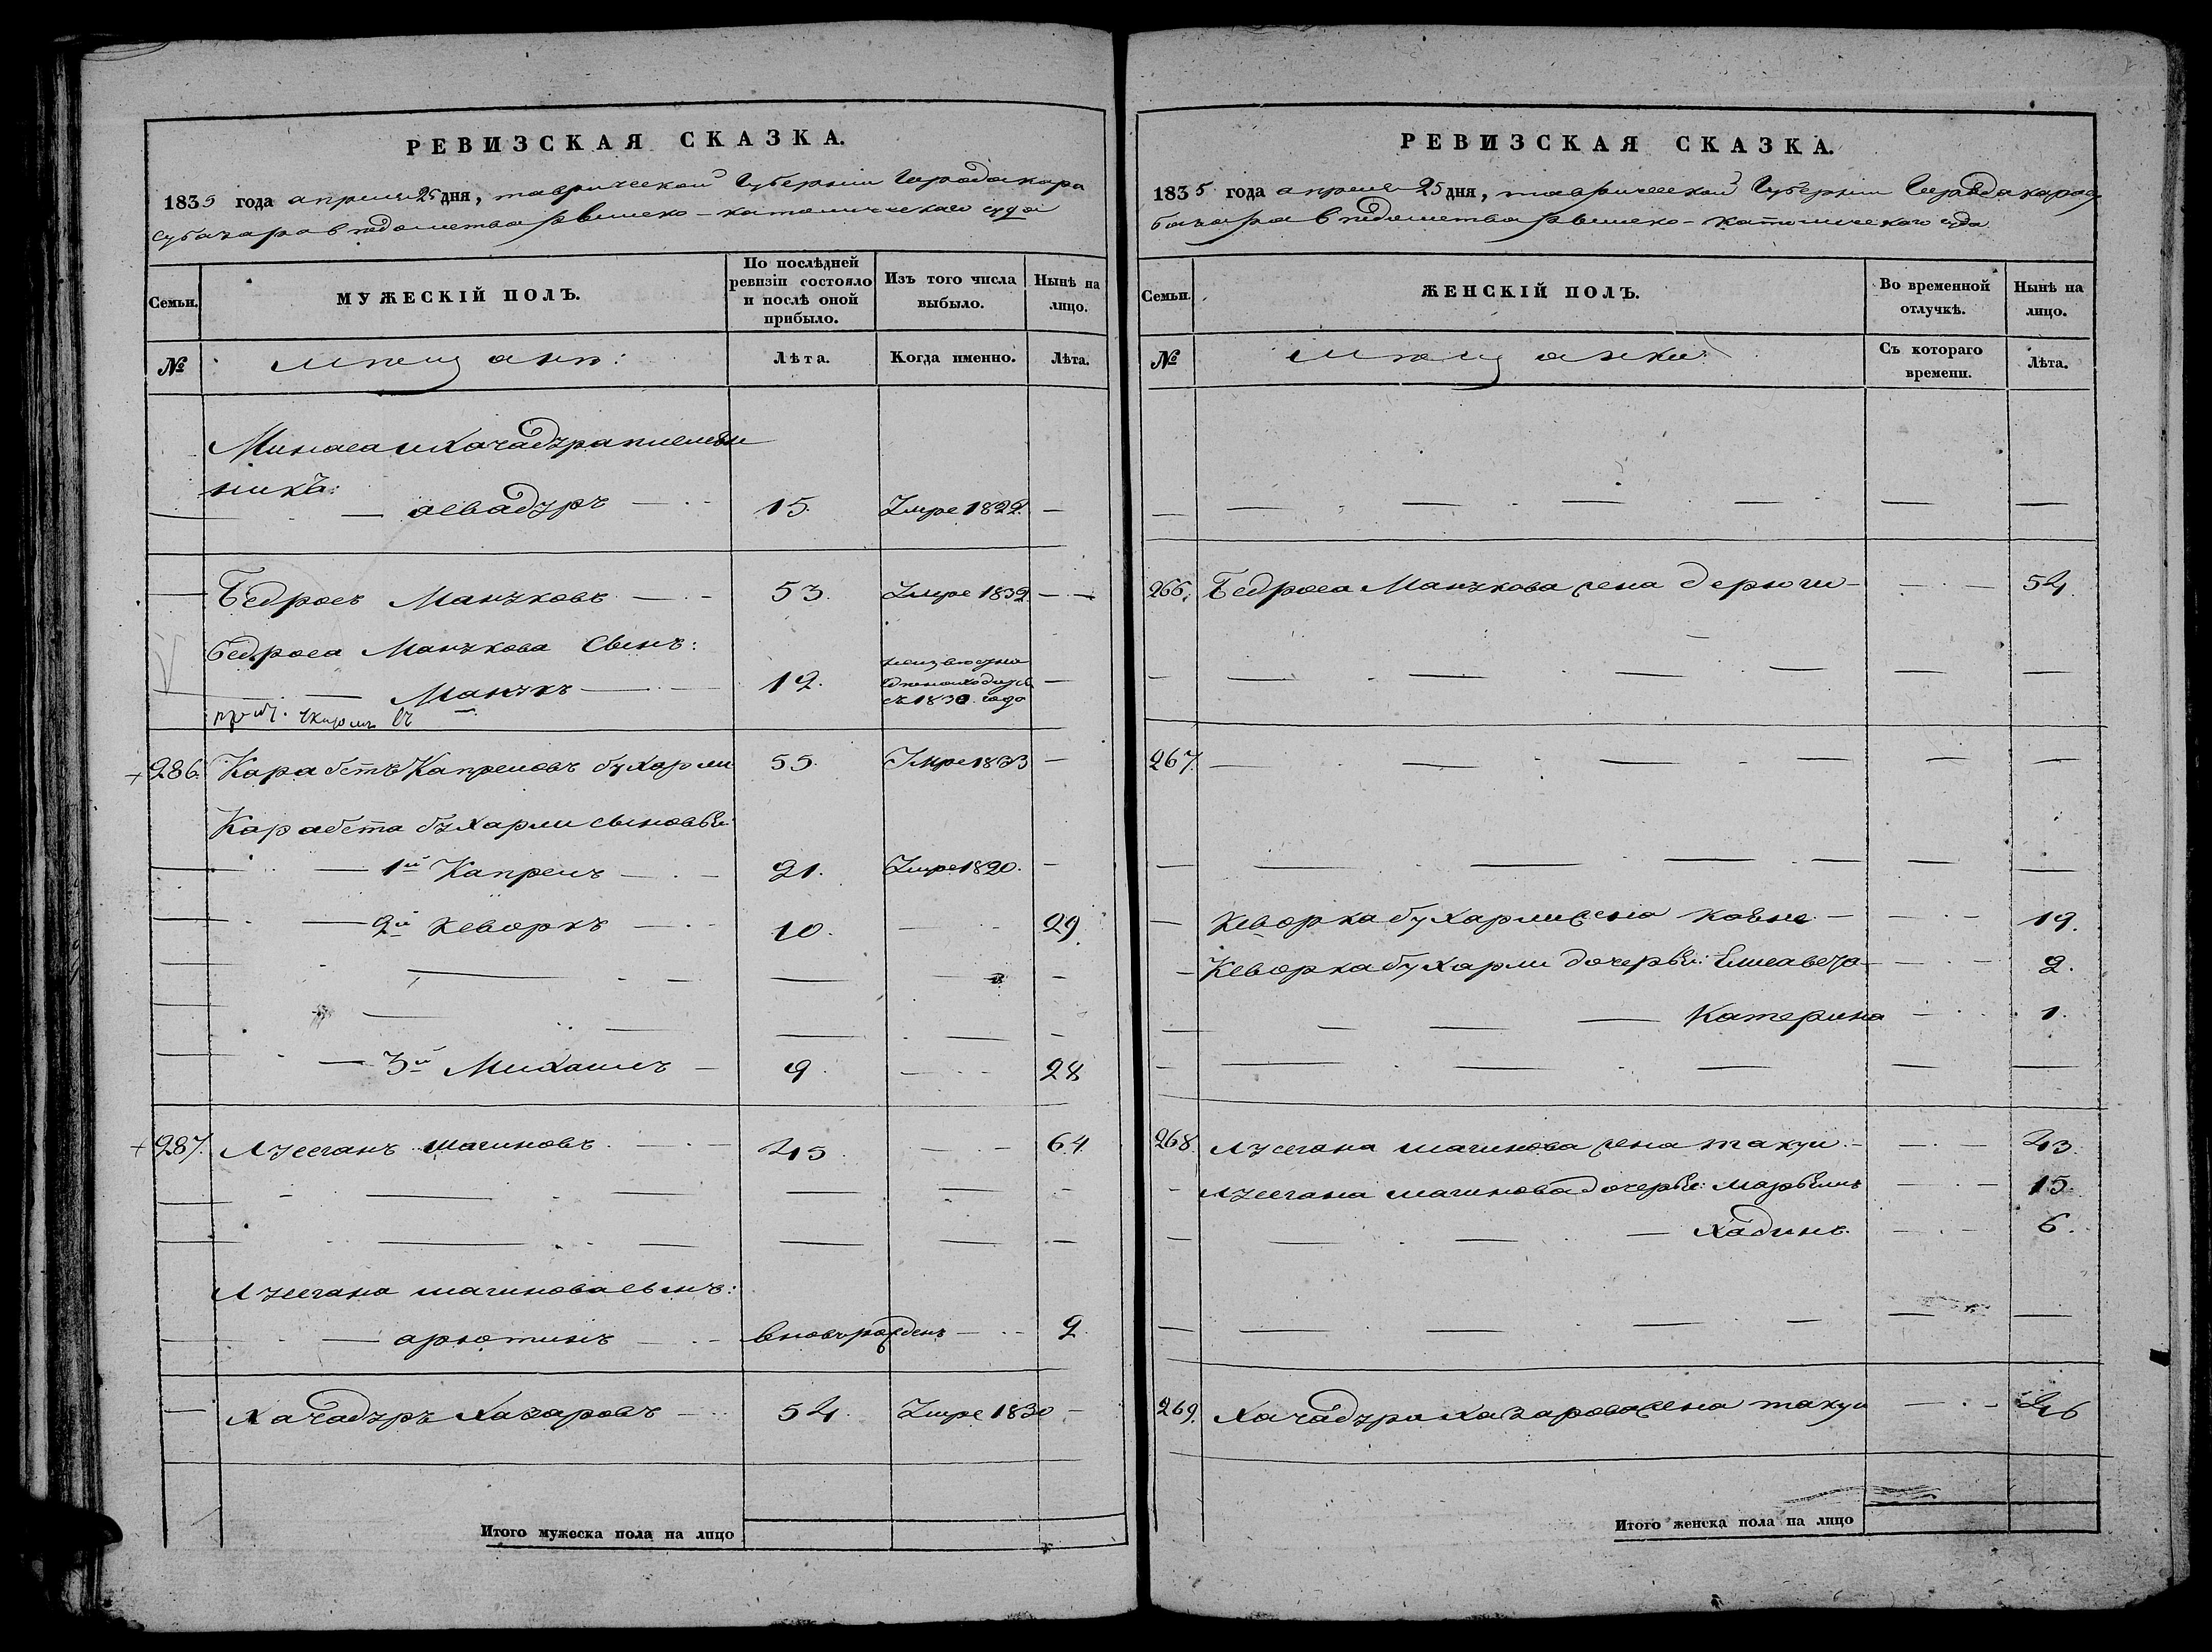 РЕВИЗСКАЯ СКАЗКА.
1835 года апреля 25 дня, таврической Губернии Города кара
субазара в ведомства римско-католического суда
Семьи.
МУЖЕСКІЙ ПОЛЪ.
По послѣдней ревизіи состояло и послѣ оной прибыло.
Изъ того числа выбыло.
Нынѣ на лицо.
№
мещане:
Лѣта.
Когда именно.
Лѣта.
Минаса и Хачадура племян
никъ:
— асвадуръ — 15. Умре 1822. —
— Бедросъ Мануковъ — 53. Умре 1832. —
Бедроса Манукова Сынъ:
— Манукъ — 12. неизвестно
съ 1830. года
286. Карабетъ Капреловъ бухарли 55. Умре 1833 —
Карабета бухарли сыновья:
— 1й Капрелъ — 21. Умре 1820. —
— 2й Кеворкъ — 10. — 29.
— 3й Михаилъ — 9. — 28
287. Лусеганъ шагиновъ. — 45. — 64.
Лусегана шагинова сынъ:
— арютинъ — вновь рожденъ — 2.
— Хачадуръ Хазаровъ — 54. Умре 1830 —
Итого мужеска пола на лицо
РЕВИЗСКАЯ СКАЗКА.
1835 года апреля 25 дня, таврической Губернии Города карасу
базара в ведомства римско-католического суда
Семьи.
ЖЕНСКІЙ ПОЛЪ.
Во временной отлучкѣ.
Нынѣ на лицо.
№
мещанки:
Съ котораго времени.
Лѣта.
266. Бедроса Манукова жена — 54.
267. —
— Кеворка бухарли жена — 19.
— Кеворка бухарли дочерьи: Елисавета — 2.
— Катерина — 1.
268. Лусегана шагинова жена такуи — 43.
— Лусегана шагинова дочерьи: — 15.
— — 6.
269. Хачадура Хазарова жена такуи — 46
Итого женска пола на лицо